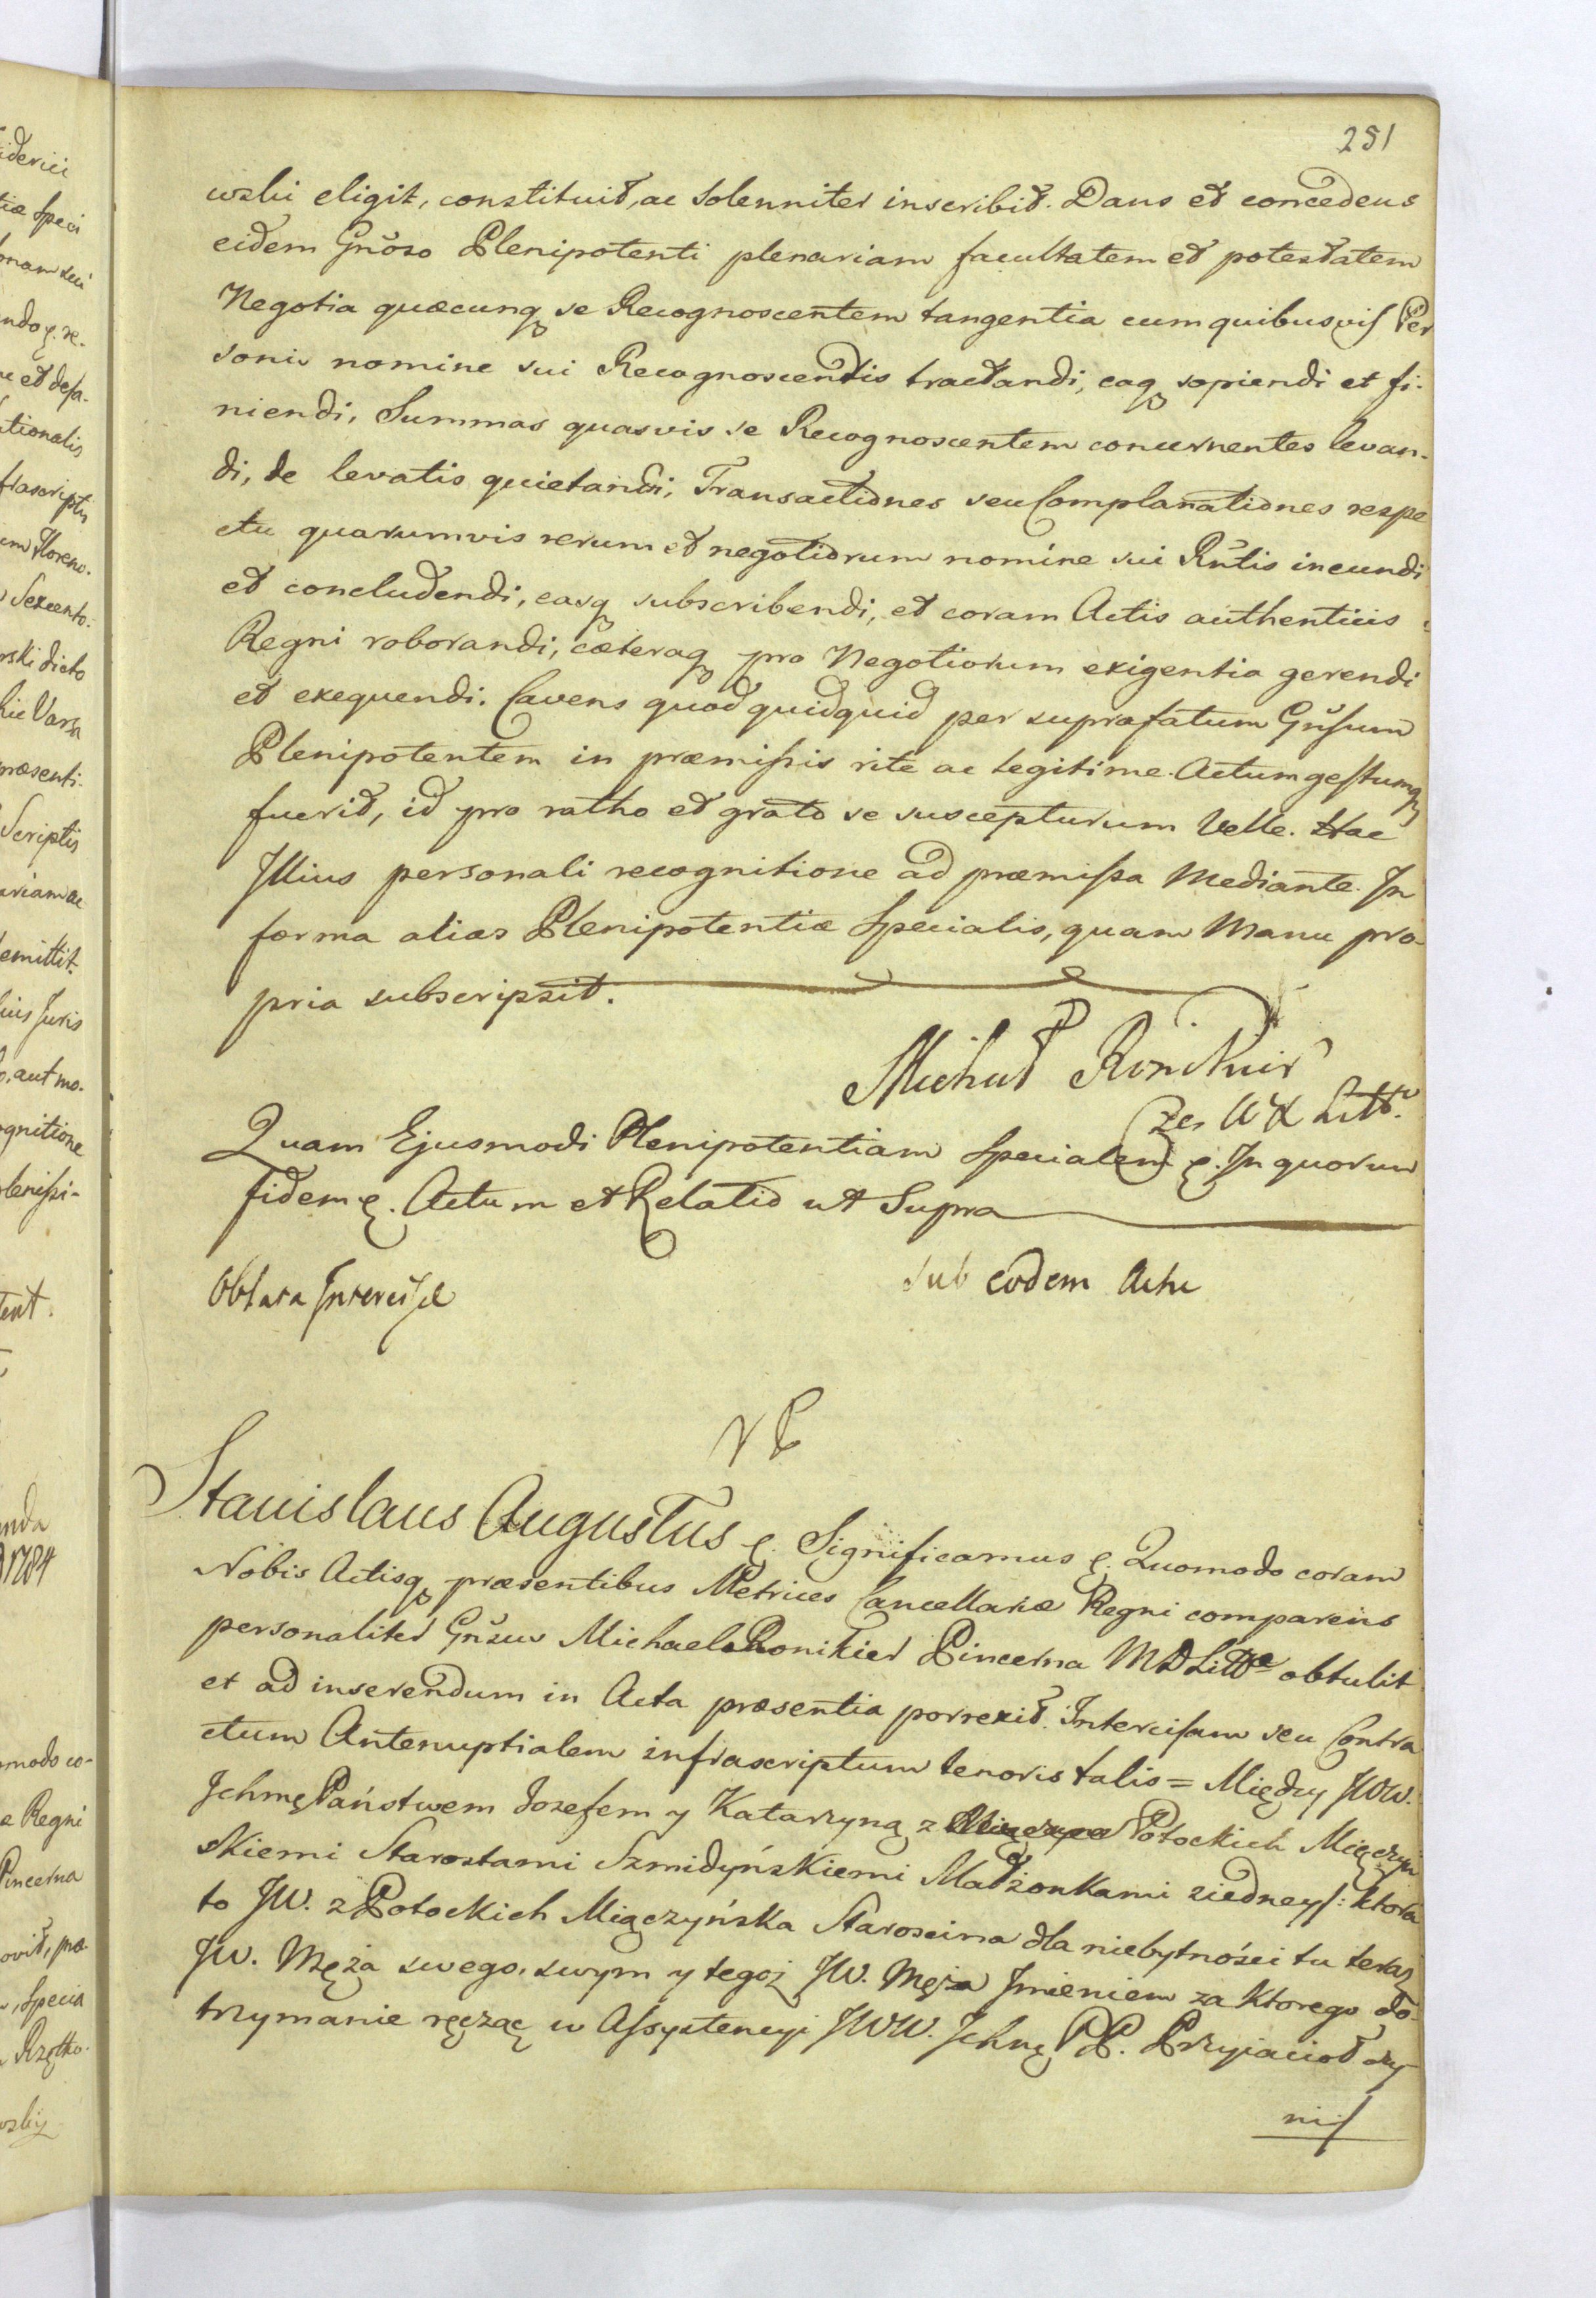 251
wski eligit, constituit, ac Solenniter inscribit. Dans et concedens
eidem Gnoso Plenipotenti plenariam facultatem et potestatem
Negotia quæcunq se Recognoscentem tangentia cum quibusvis Per
sonis nomine sui Recognoscentis tractandi, eaq sopiendi et fi-
niendi, Summas quasvis se Recognoscentem concernentes levan-
di, de levatis quietandi, Transactiones seu Complanationes respe
ctu quarumvis rerum et negotiorum nomine sui Rntis ineundi
et concludendi, easq subscribendi, et coram Actis authenticis
Regni roborandi, cæteraq pro Negotiorum exigentia gerendi
et exequendi. Cavens quod quidquid per suprafatum Gnsum
Plenipotentem in præmissis rite ac legitime Actum gestumq
fuerit, id pro ratho et grato se suscepturum Velle. Hac
Illius personali recognitione ad præmissa Mediante. In
forma alias Plenipotentiæ Specialis, quam Manu pro-
pria subscripsit.
Michał Ronikier
Cześ W X Litt.
Quam Ejusmodi Plenipotentiam Specialem &. In quorum
fidem &. Actum et Relatio ut Supra
Oblata Intercisæ
sub eodem Actu
Stanislaus Augustus &. Significamus &. Quomodo coram
Nobis Actisq præsentibus Metrices Cancellariæ Regni comparens
personaliter Gnsus Michael Ronikier Pincerna M D Littæ obtulit
et ad inserendum in Acta præsentia porrexit. Intercisam seu Contra
ctum Antenuptialem infrascriptum tenoris talis = Między JWW.
Ichmę Państwem Jozefem y Katarzyną z Potockich Miączyń
skiemi Starostami Szmidyńskiemi Małżonkami z iedney /: ktora
to JW. z Potockich Miączyńska Starościna dla niebytności tu teraz
JW. Męża swego, swym y tegoż JW. Męża Imieniem za ktorego do-
trzymanie ręcząc w Assystencyi JWW. Ichmę PP. Przyiacioł zy
niż